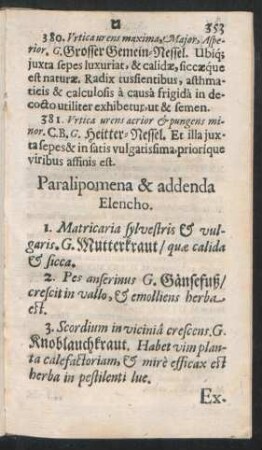 353
380. Vrtica urens maxima, Major, Aspe-
rior. G. Grosser Gemein-Nessel. Ubiq;
juxta sepes luxuriat, & calidæ, siccæque
est naturæ. Radix tussientibus, asthma-
ticis & calculosis à causâ frigidâ in de-
cocto utiliter exhibetur, ut & semen.
381. Vrtica urens acrior & pungens mi-
nor. C.B, G. Heitter-Nessel. Et illa jux-
ta sepes & in satis vulgatissima, priorique
viribus affinis est.
Paralipomena & addenda
Elencho.
1. Matricaria sylvestris & vul-
garis. G. Mutterkraut/ quæ calida
& sicca.
2. Pes anserinus G. Gänsefuß/
crescit in vallo, & emolliens herba
est.
3. Scordium in viciniâ crescens. G.
Knoblauchkraut. Habet vim plan-
ta calefactoriam, & mirè efficax est
herba in pestilenti lue.
Ex-